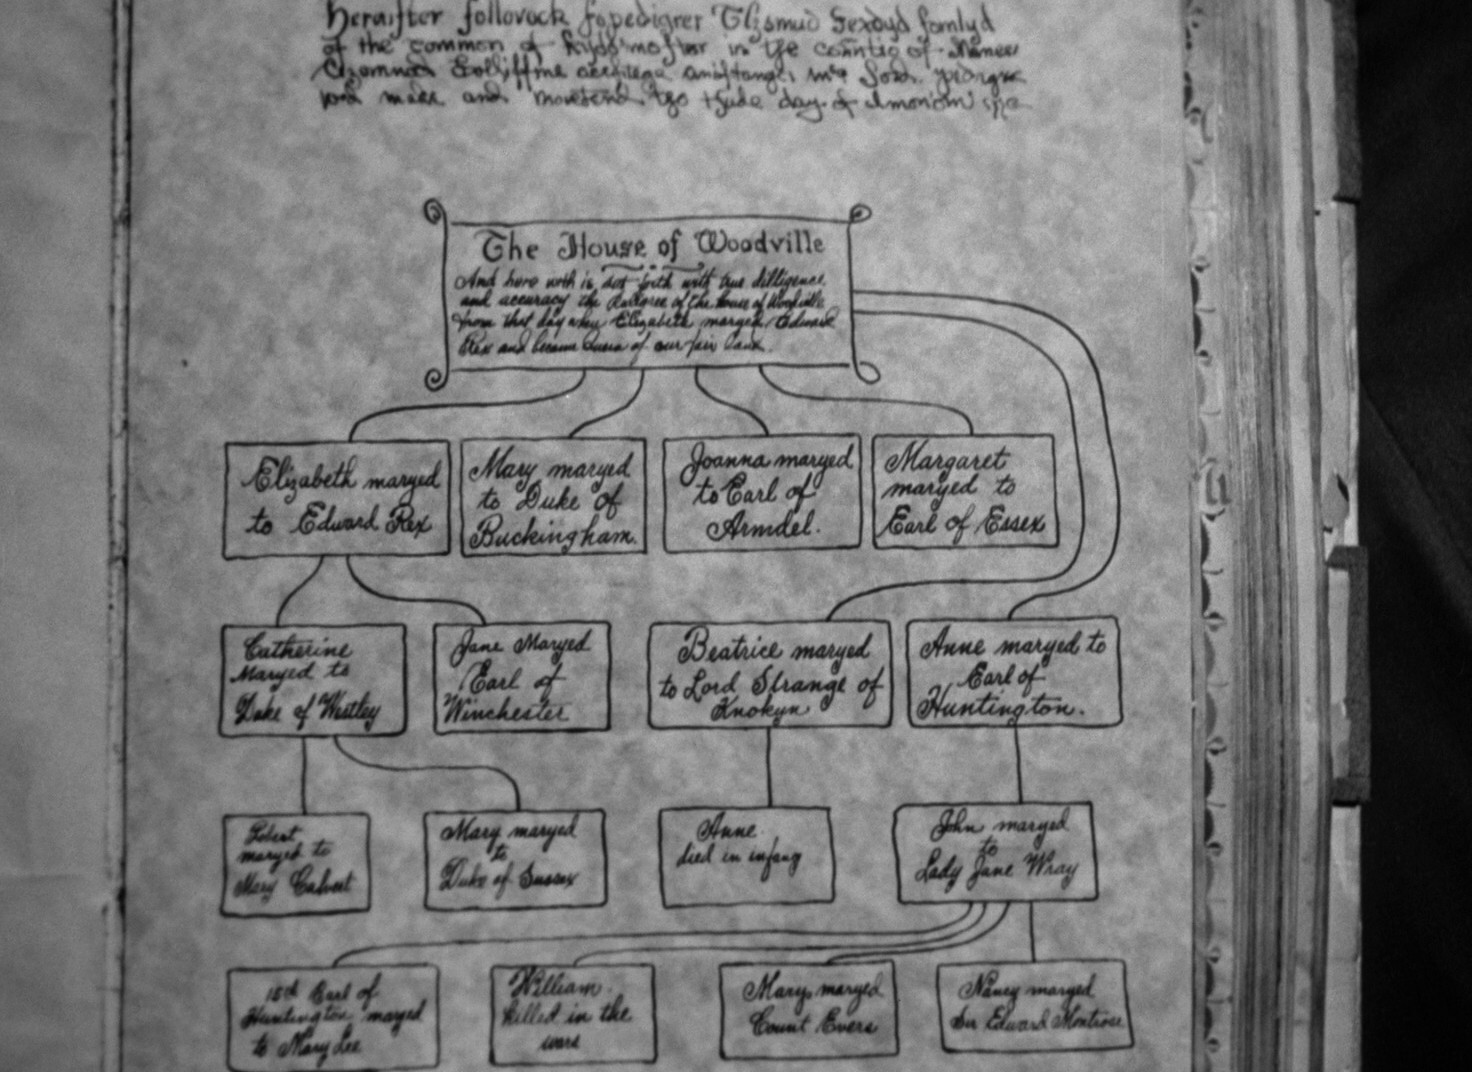 of the common of in the of
and make and day of
The House of Woodville
And here with is set forth with true dilligence
and accuracy the of the house of Woodville
from that day when Elizabeth maryed Edward
Rex and became Queen of our fair land.
Elizabeth maryed
to Edward Rex
Mary maryed
to Duke of
Buckingham.
Joanna maryed
to Earl of
Arundel.
Margaret
maryed to
Earl of Essex
Catherine
Maryed to
Duke of Westley
Jane Maryed
Earl of
Winchester
Beatrice maryed
to Lord Strange of
Knokyn
Anne maryed to
Earl of
Huntington.
Robert
maryed to
Mary Calvert
Mary maryed
to
Duke of Sussex
Anne
died in infancy
John maryed
to
Lady Jane Wray
15th Earl of
Huntington maryed
to Mary Lee
William
killed in the
wars
Mary maryed
Count Evers
Nancy maryed
Sir Edward Montrose